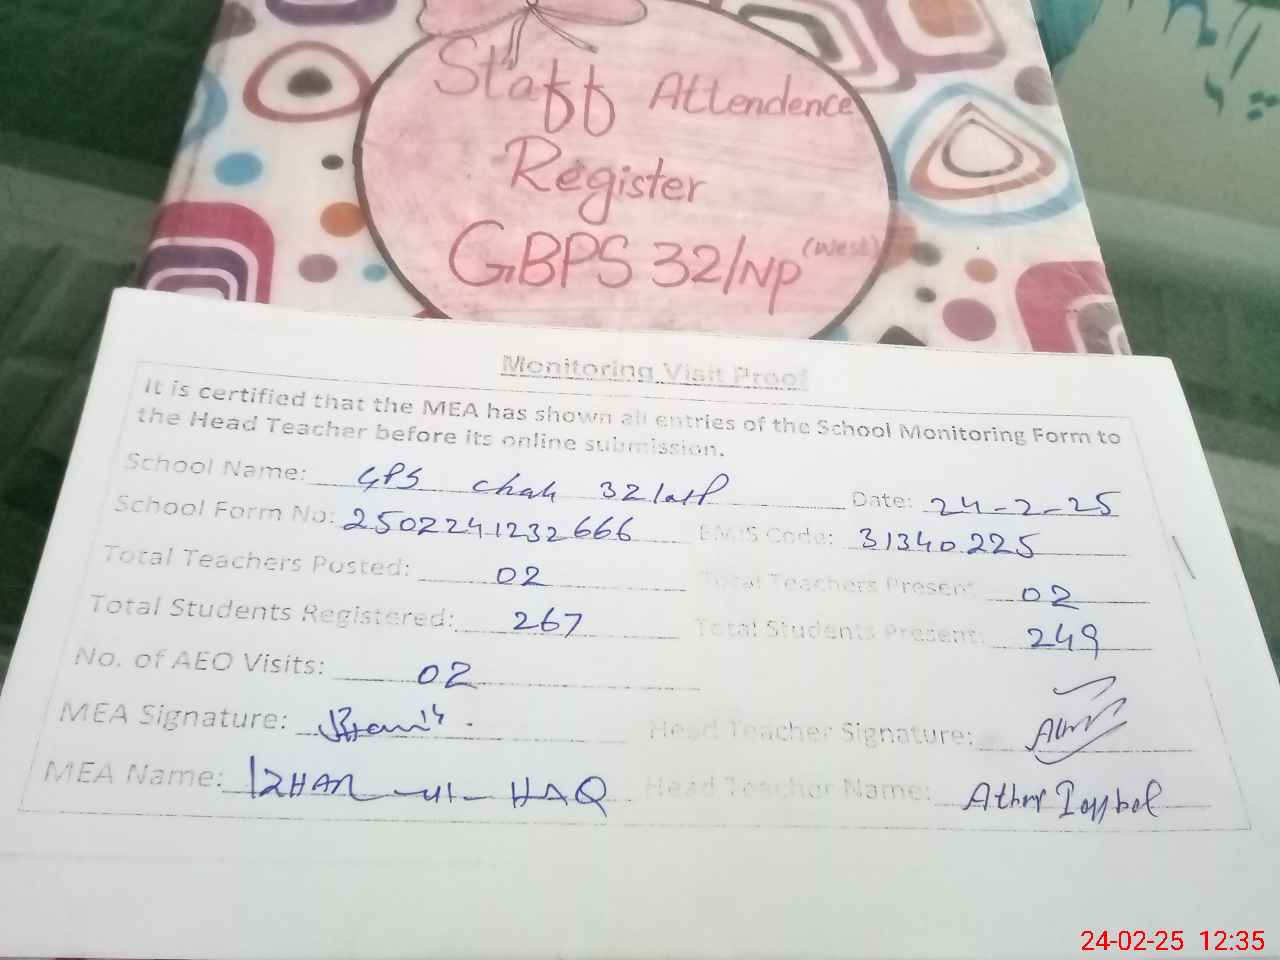 Staff Attendence
Register
GBPS 32/NP (West)
Monitoring Visit Proof
It is certified that the MEA has shown all entries of the School Monitoring Form to
the Head Teacher before its online submission.
School Name: GPS Chak 32/ Date: 24-2-25
School Form No: 2502241232666 EMIS Code: 31340225
Total Teachers Posted: 02 Total Teachers Present: 02
Total Students Registered: 267 Total Students Present: 249
No. of AEO Visits: 02
MEA Signature: Head Teacher Signature:
MEA Name: IZHAR-ul-HAQ Head Teacher Name: Ather Iqbal
24-02-25 12:35